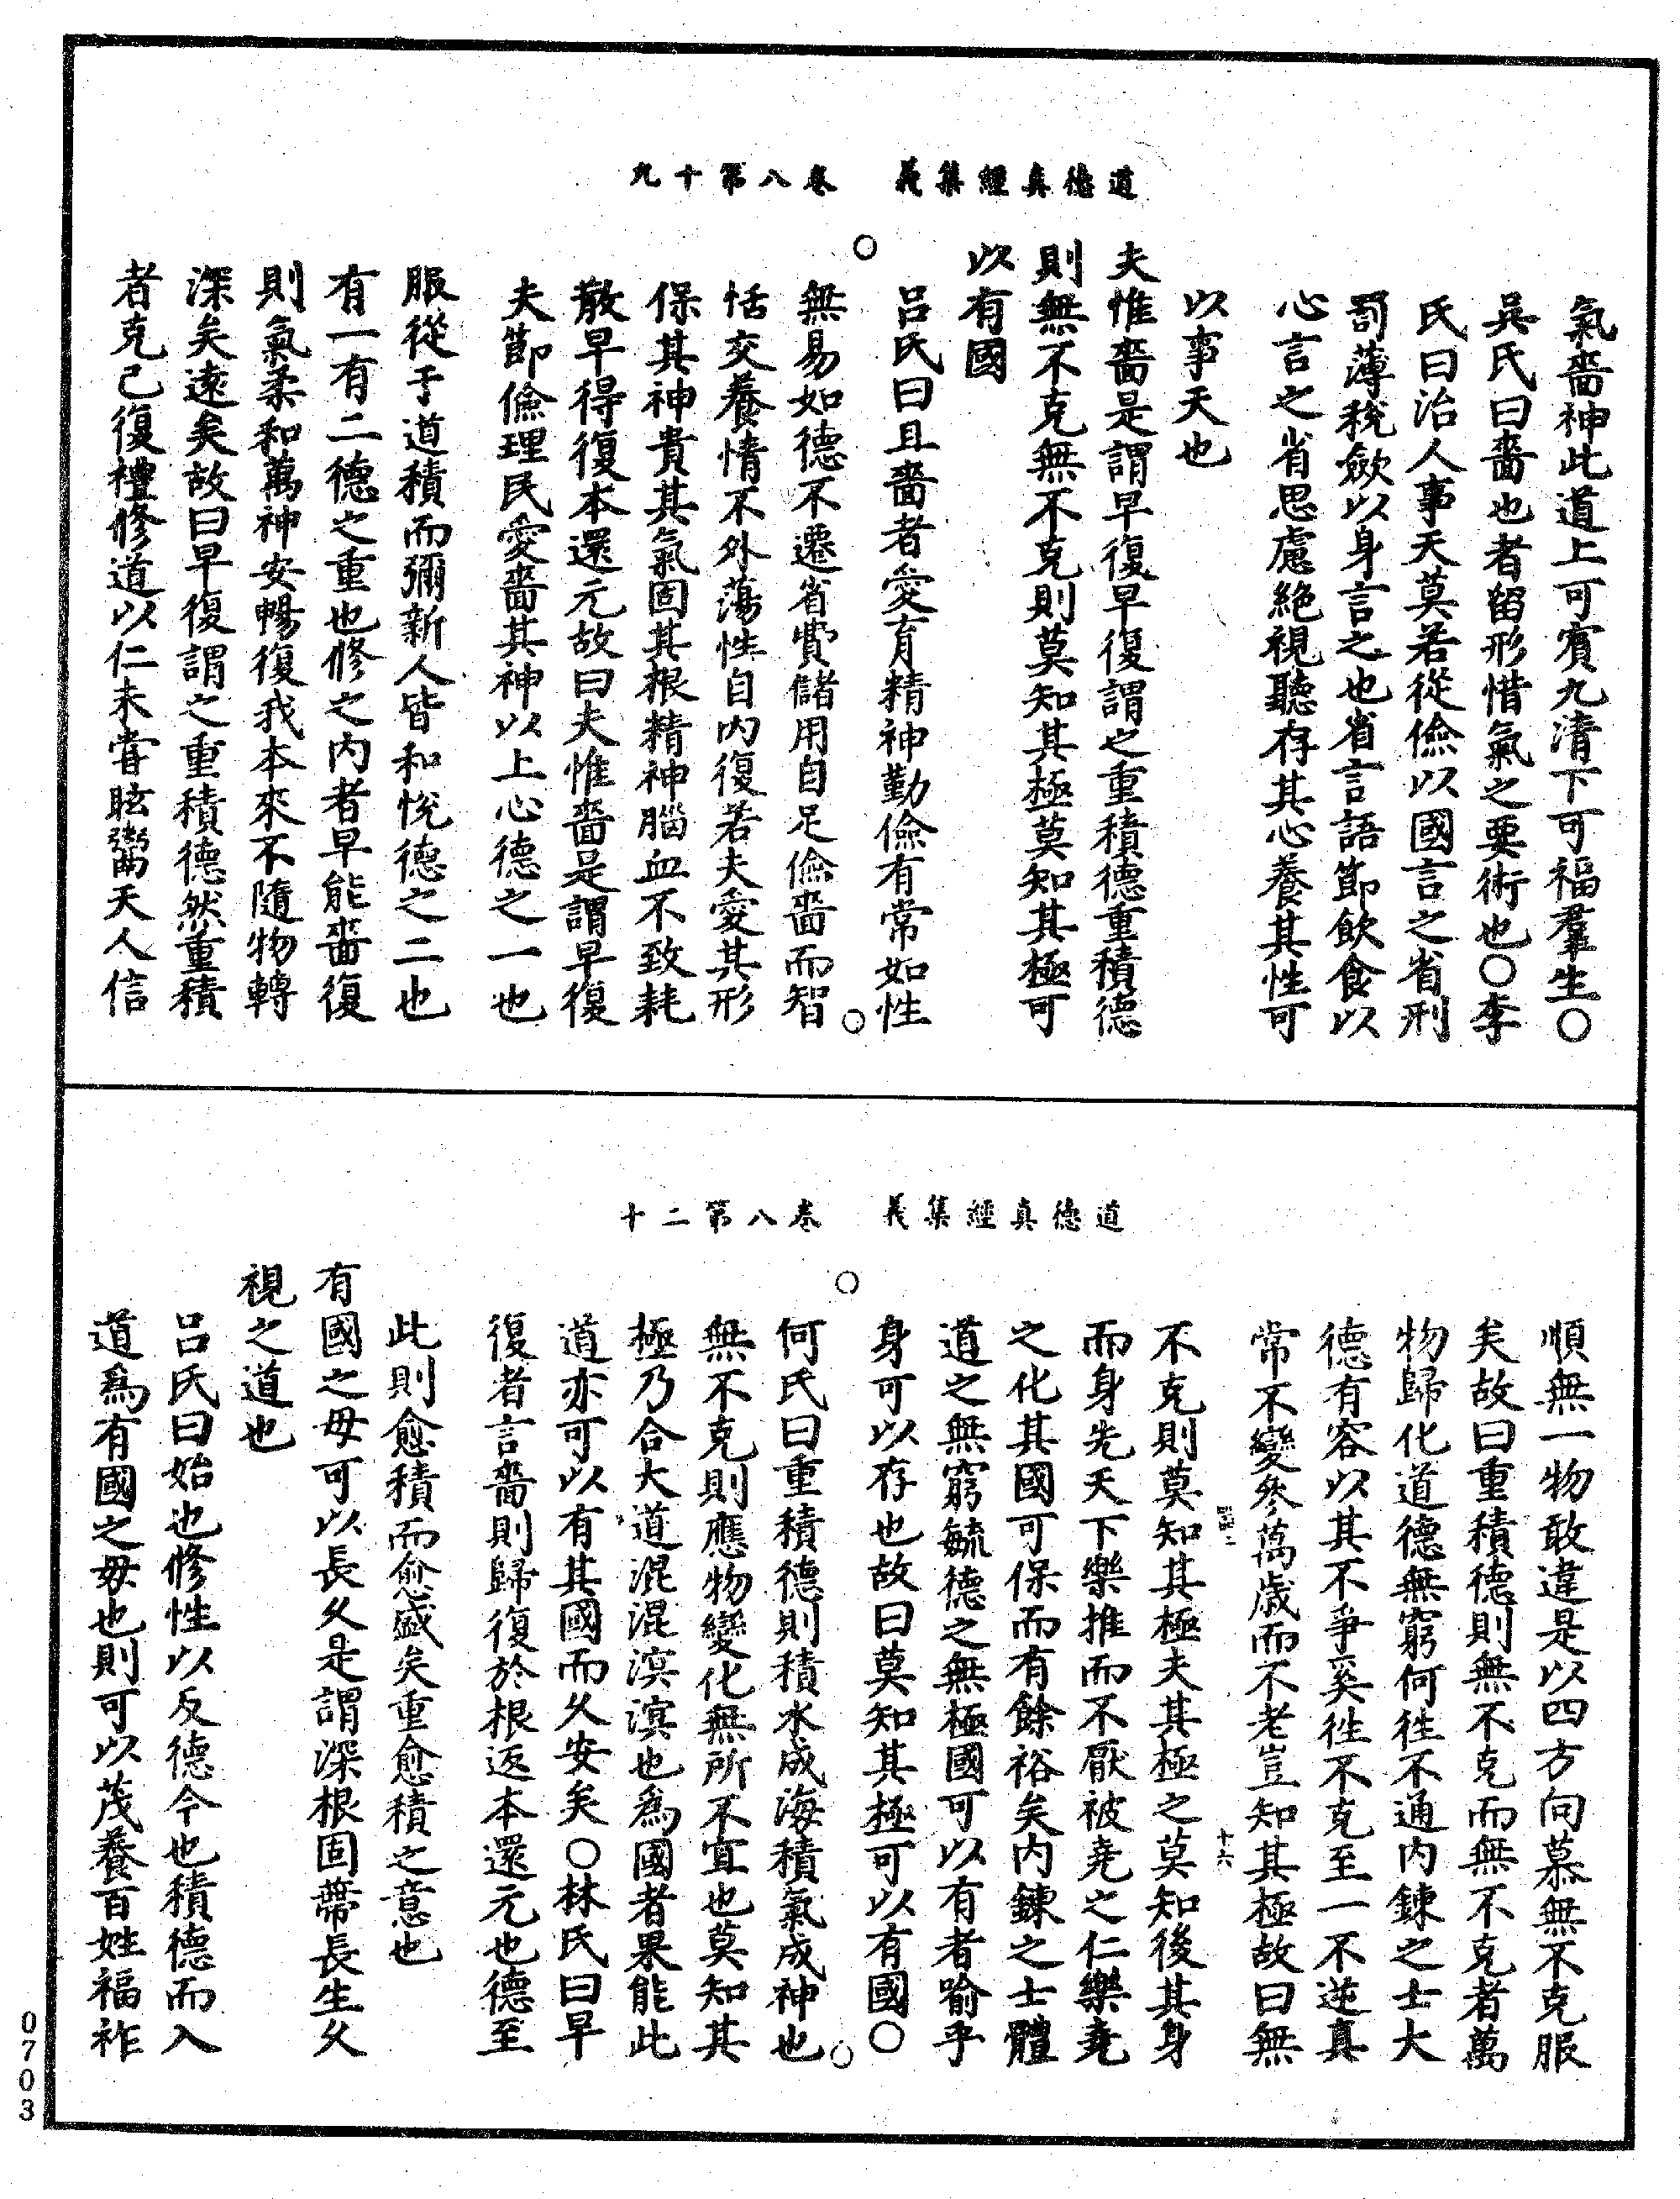 道德真經集義　卷八第十九
氣嗇神此道上可賓九清下可福羣生○
吳氏曰嗇也者留形惜氣之要術也○李
氏曰治人事天莫若從儉以國言之省刑
罰薄稅斂以身言之也省言語節飲食以
心言之省思慮絕視聽存其心養其性可
以事天也
夫惟嗇是謂早復早復謂之重積德重積德
則無不克無不克則莫知其極莫知其極可
以有國
呂氏曰且嗇者愛育精神勤儉有常如性
無易如德不遷省費儲用自足儉嗇而智
恬交養情不外蕩性自內復若夫愛其形
保其神貴其氣固其根精神腦血不致耗
散早得復本還元故曰夫惟嗇是謂早復
夫節儉理民愛嗇其神以上心德之一也
服從于道積而彌新人皆和悅德之二也
有一有二德之重也修之內者早能嗇復
則氣柔和萬神安暢復我本來不隨物轉
深矣遠矣故曰早復謂之重積德然重積
者克己復禮修道以仁未嘗眩鬻天人信
道德真經集義　卷八第二十
順無一物敢違是以四方向慕無不克服
矣故曰重積德則無不克而無不克者萬
物歸化道德無窮何往不通內鍊之士大
德有容以其不爭奚往不克至一不逆真
常不變參萬歲而不老豈知其極故曰無
十六
不克則莫知其極夫其極之莫知後其身
而身先天下樂推而不厭被堯之仁樂堯
之化其國可保而有餘裕矣內鍊之士體
道之無窮毓德之無極國可以有者喻乎
身可以存也故曰莫知其極可以有國○
何氏曰重積德則積水成海積氣成神也
無不克則應物變化無所不宜也莫知其
極乃合大道混混溟溟也爲國者果能此
道亦可以有其國而久安矣○林氏曰早
復者言嗇則歸復於根返本還元也德至
此則愈積而愈盛矣重愈積之意也
有國之母可以長久是謂深根固蔕長生久
視之道也
呂氏曰始也修性以反德今也積德而入
道爲有國之母也則可以茂養百姓福祚
0703